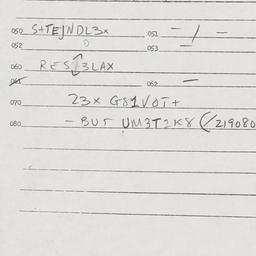 050 S+TEJNDL3x 051 - / -
052 053
060 RES/3LAX
061 062 -
070 23x G81VOT+
080 - BUT UM3T2K8 (/219080